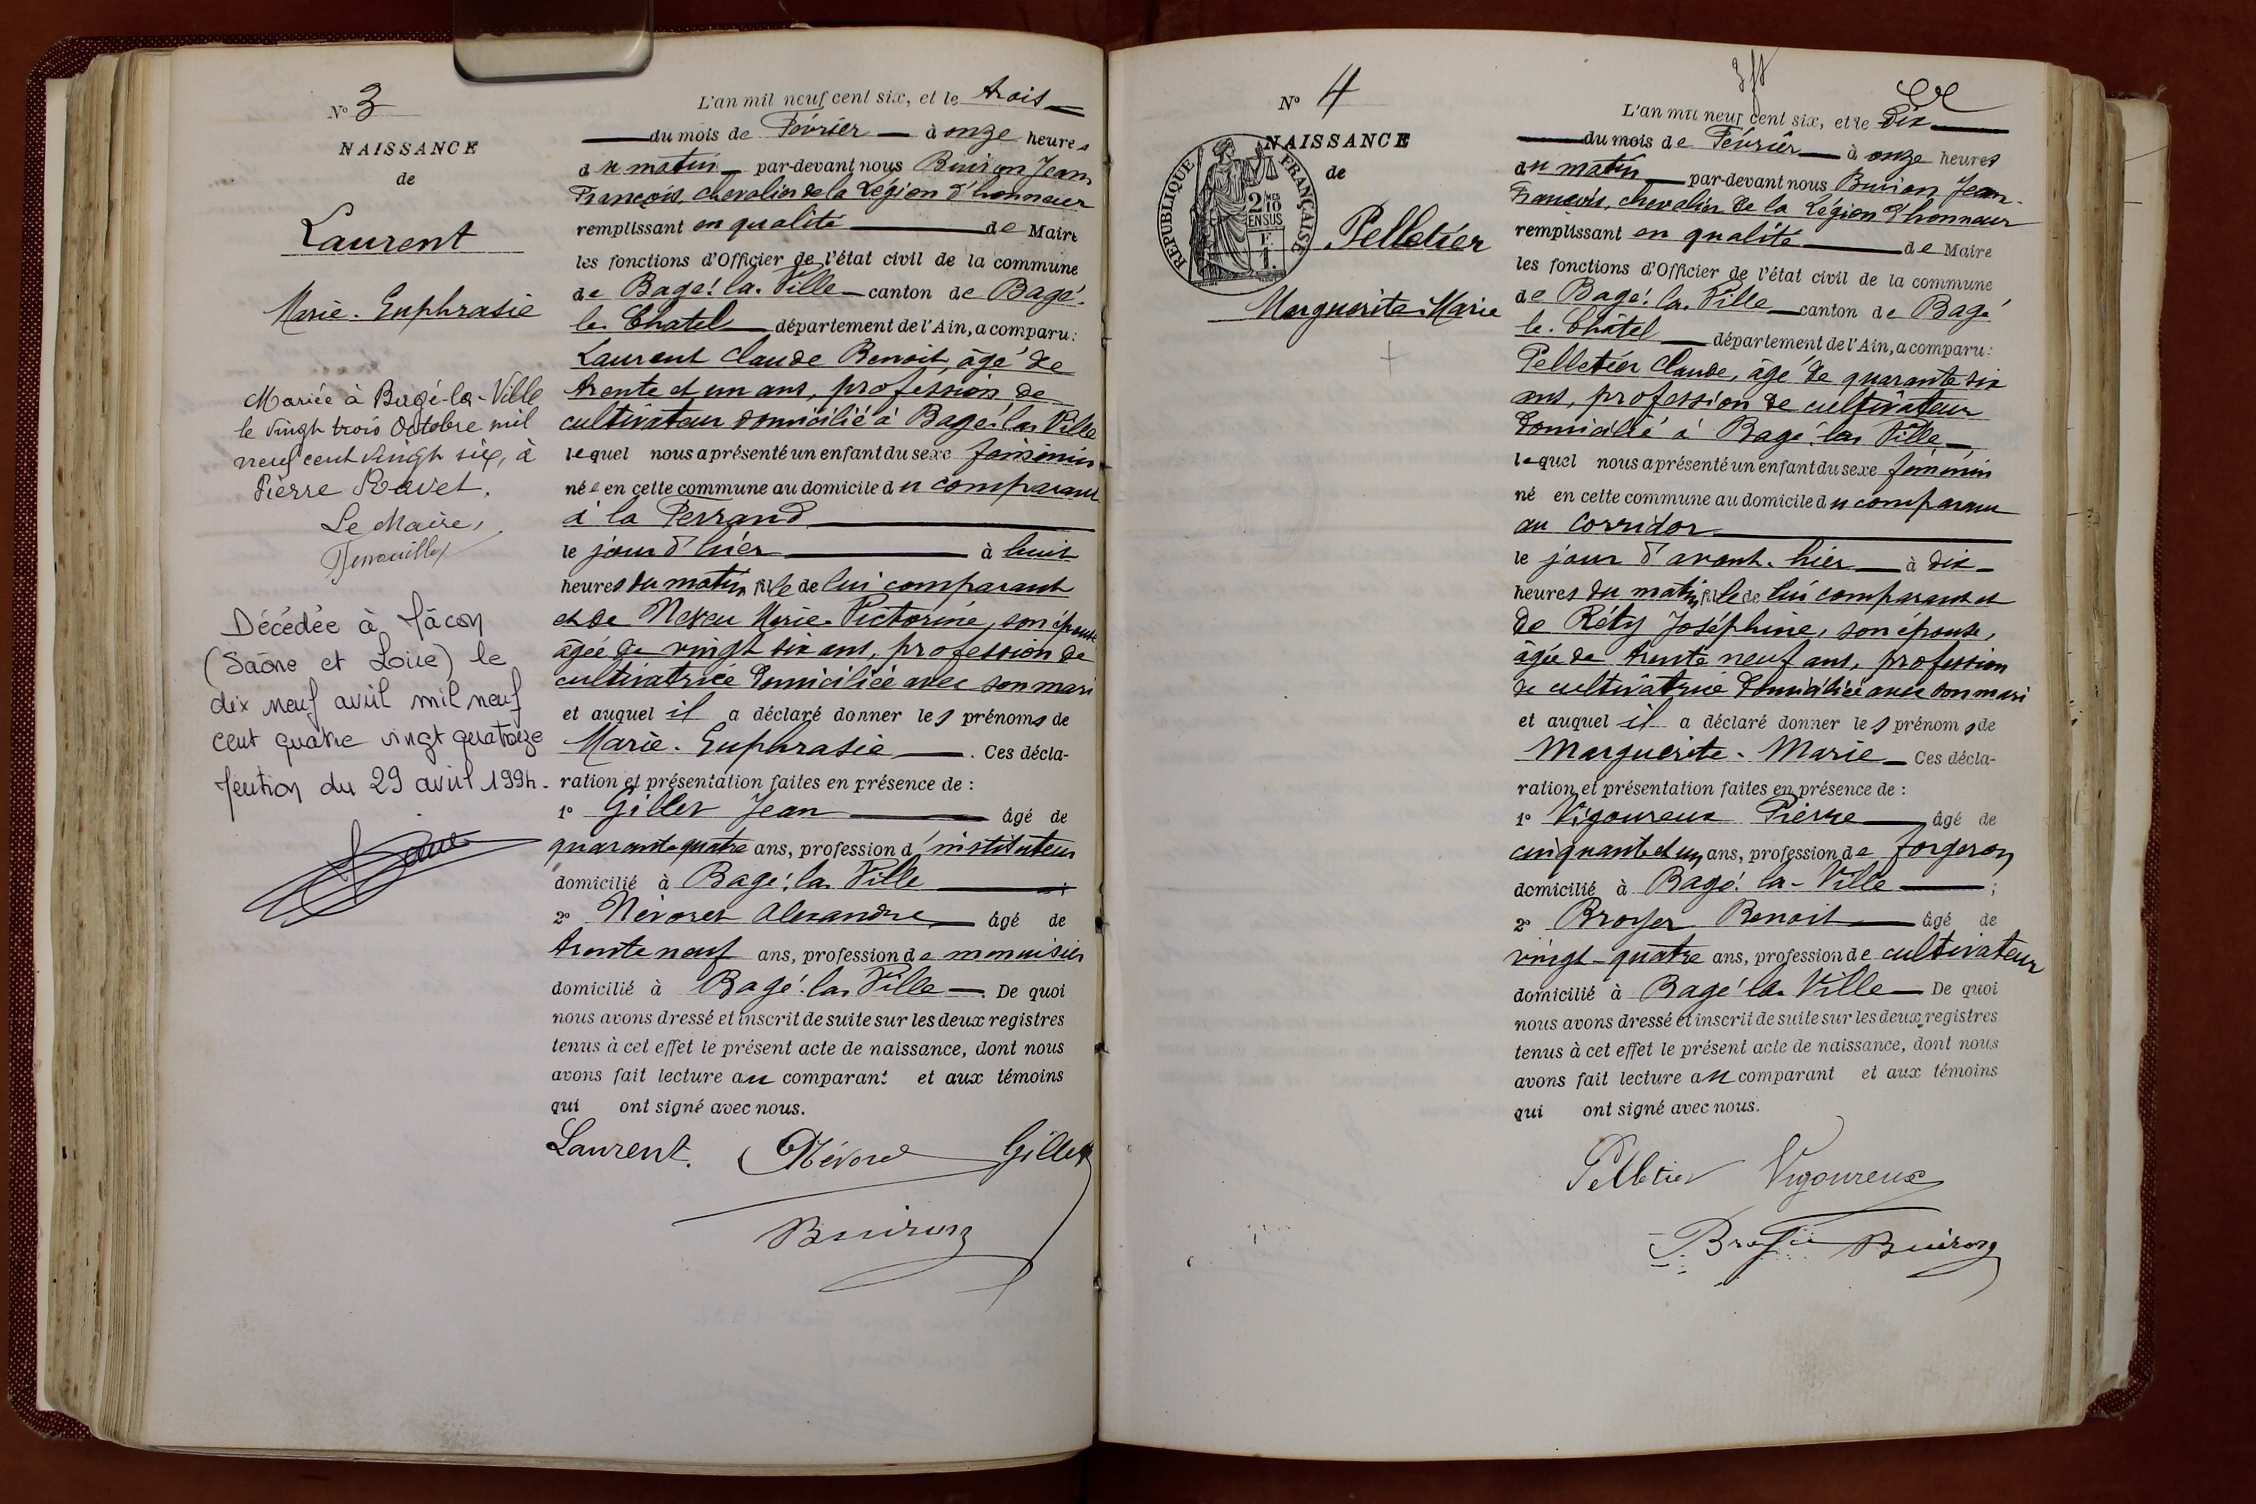 N° 3
NAISSANCE
de
Laurent
Marie-Euphrasie
Mariée à Bagé-la-Ville
le vingt trois Octobre mil
neuf cent vingt six, à
Pierre Ravet.
Le Maire,
Décédée à Mâcon
(Saône et Loire) le
dix neuf avril mil neuf
cent quatre vingt quatorze
Mention du 29 avril 1994.
L'an mil neuf cent six, et le trois
du mois de Février à onze heures
du matin par-devant nous Buiron Jean
François, chevalier de la Légion d'honneur
remplissant en qualité de Maire
les fonctions d'Officier de l'état civil de la commune
de Bagé-la-Ville canton de Bagé-
le-Chatel département de l'Ain, a comparu:
Laurent Claude Benoit, âgé de
trente et un ans, profession de
cultivateur domicilié à Bagé-la-Ville
lequel nous a présenté un enfant du sexe féminin
née en cette commune au domicile du comparant
à la Ferrand
le jour d'hier à huit
heures du matin fille de lui comparant
et de Neveu Marie-Victorine, son épouse
âgée de vingt six ans, profession de
cultivatrice domiciliée avec son mari
et auquel il a déclaré donner les prénoms de
Marie-Euphrasie. Ces décla-
ration et présentation faites en présence de :
1° Gillet Jean âgé de
quarante quatre ans, profession d'instituteur
domicilié à Bagé-la-Ville ;
2° Névoret Alexandre âgé de
trente neuf ans, profession de menuisier
domicilié à Bagé-la-Ville. De quoi
nous avons dressé et inscrit de suite sur les deux registres
tenus à cet effet le présent acte de naissance, dont nous
avons fait lecture au comparant et aux témoins
qui ont signé avec nous.
Laurent. Névoret Gillet
Buiron
N° 4
NAISSANCE
de
RÉPUBLIQUE FRANÇAISE
2 10
EN SUS
Pelletier
Marguerite-Marie
L'an mil neuf cent six, et le dix
du mois de Février à onze heures
du matin par-devant nous Buiron Jean-
François, chevalier de la Légion d'honneur
remplissant en qualité de Maire
les fonctions d'Officier de l'état civil de la commune
de Bagé-la-Ville canton de Bagé
le-Châtel département de l'Ain, a comparu:
Pelletier Claude, âgé de quarante six
ans, profession de cultivateur
domicilié à Bagé-la-Ville
lequel nous a présenté un enfant du sexe féminin
né en cette commune au domicile du comparant
au Corridor
le jour d'avant-hier à dix
heures du matin, fille de lui comparant et
de Réty Joséphine, son épouse,
âgée de trente neuf ans, profession
de cultivatrice domiciliée avec son mari
et auquel il a déclaré donner les prénoms de
Marguerite-Marie Ces décla-
ration et présentation faites en présence de :
1° Vigoureux Pierre âgé de
cinquante et un ans, profession de forgeron
domicilié à Bagé-la-Ville ;
2° Broyer Benoit âgé de
vingt-quatre ans, profession de cultivateur
domicilié à Bagé-la-Ville De quoi
nous avons dressé et inscrit de suite sur les deux registres
tenus à cet effet le présent acte de naissance, dont nous
avons fait lecture au comparant et aux témoins
qui ont signé avec nous.
Pelletier Vigoureux
Buiron